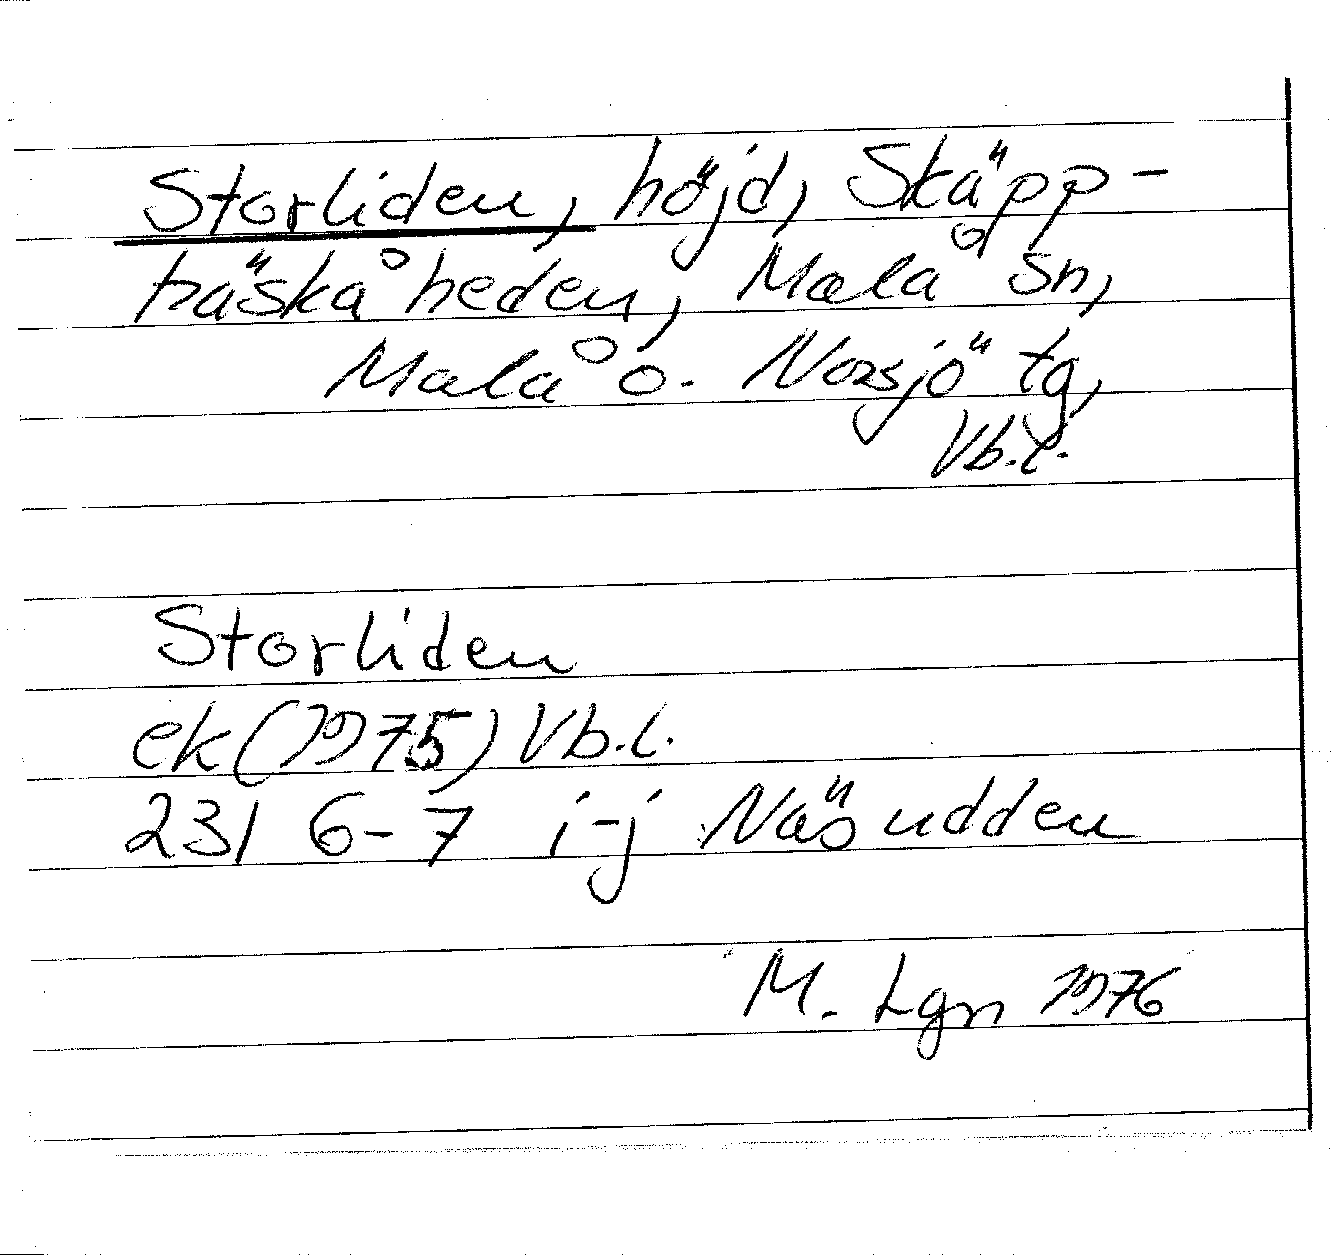 Storliden, höjd, Skäpp-
träskåheden, Malå sn,
Malå o. Norsjö tg,
Vb.l.
Storliden
ek(1975) Vb.l.
23I 6-7 i-j Näsudden
M. Lgn 1976